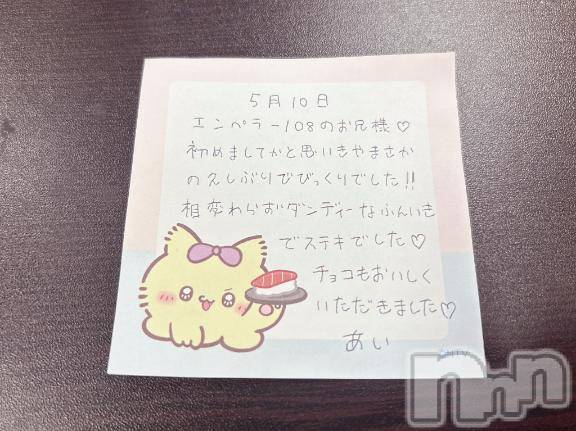 5月10日
エンペラー108のお兄様♡
初めましてかと思いきやまさか
の久しぶりでびっくりでした!!
相変わらずダンディーなふんいき
でステキでした♡
チョコもおいしく
いただきました♡
あい
©NTV
nnn